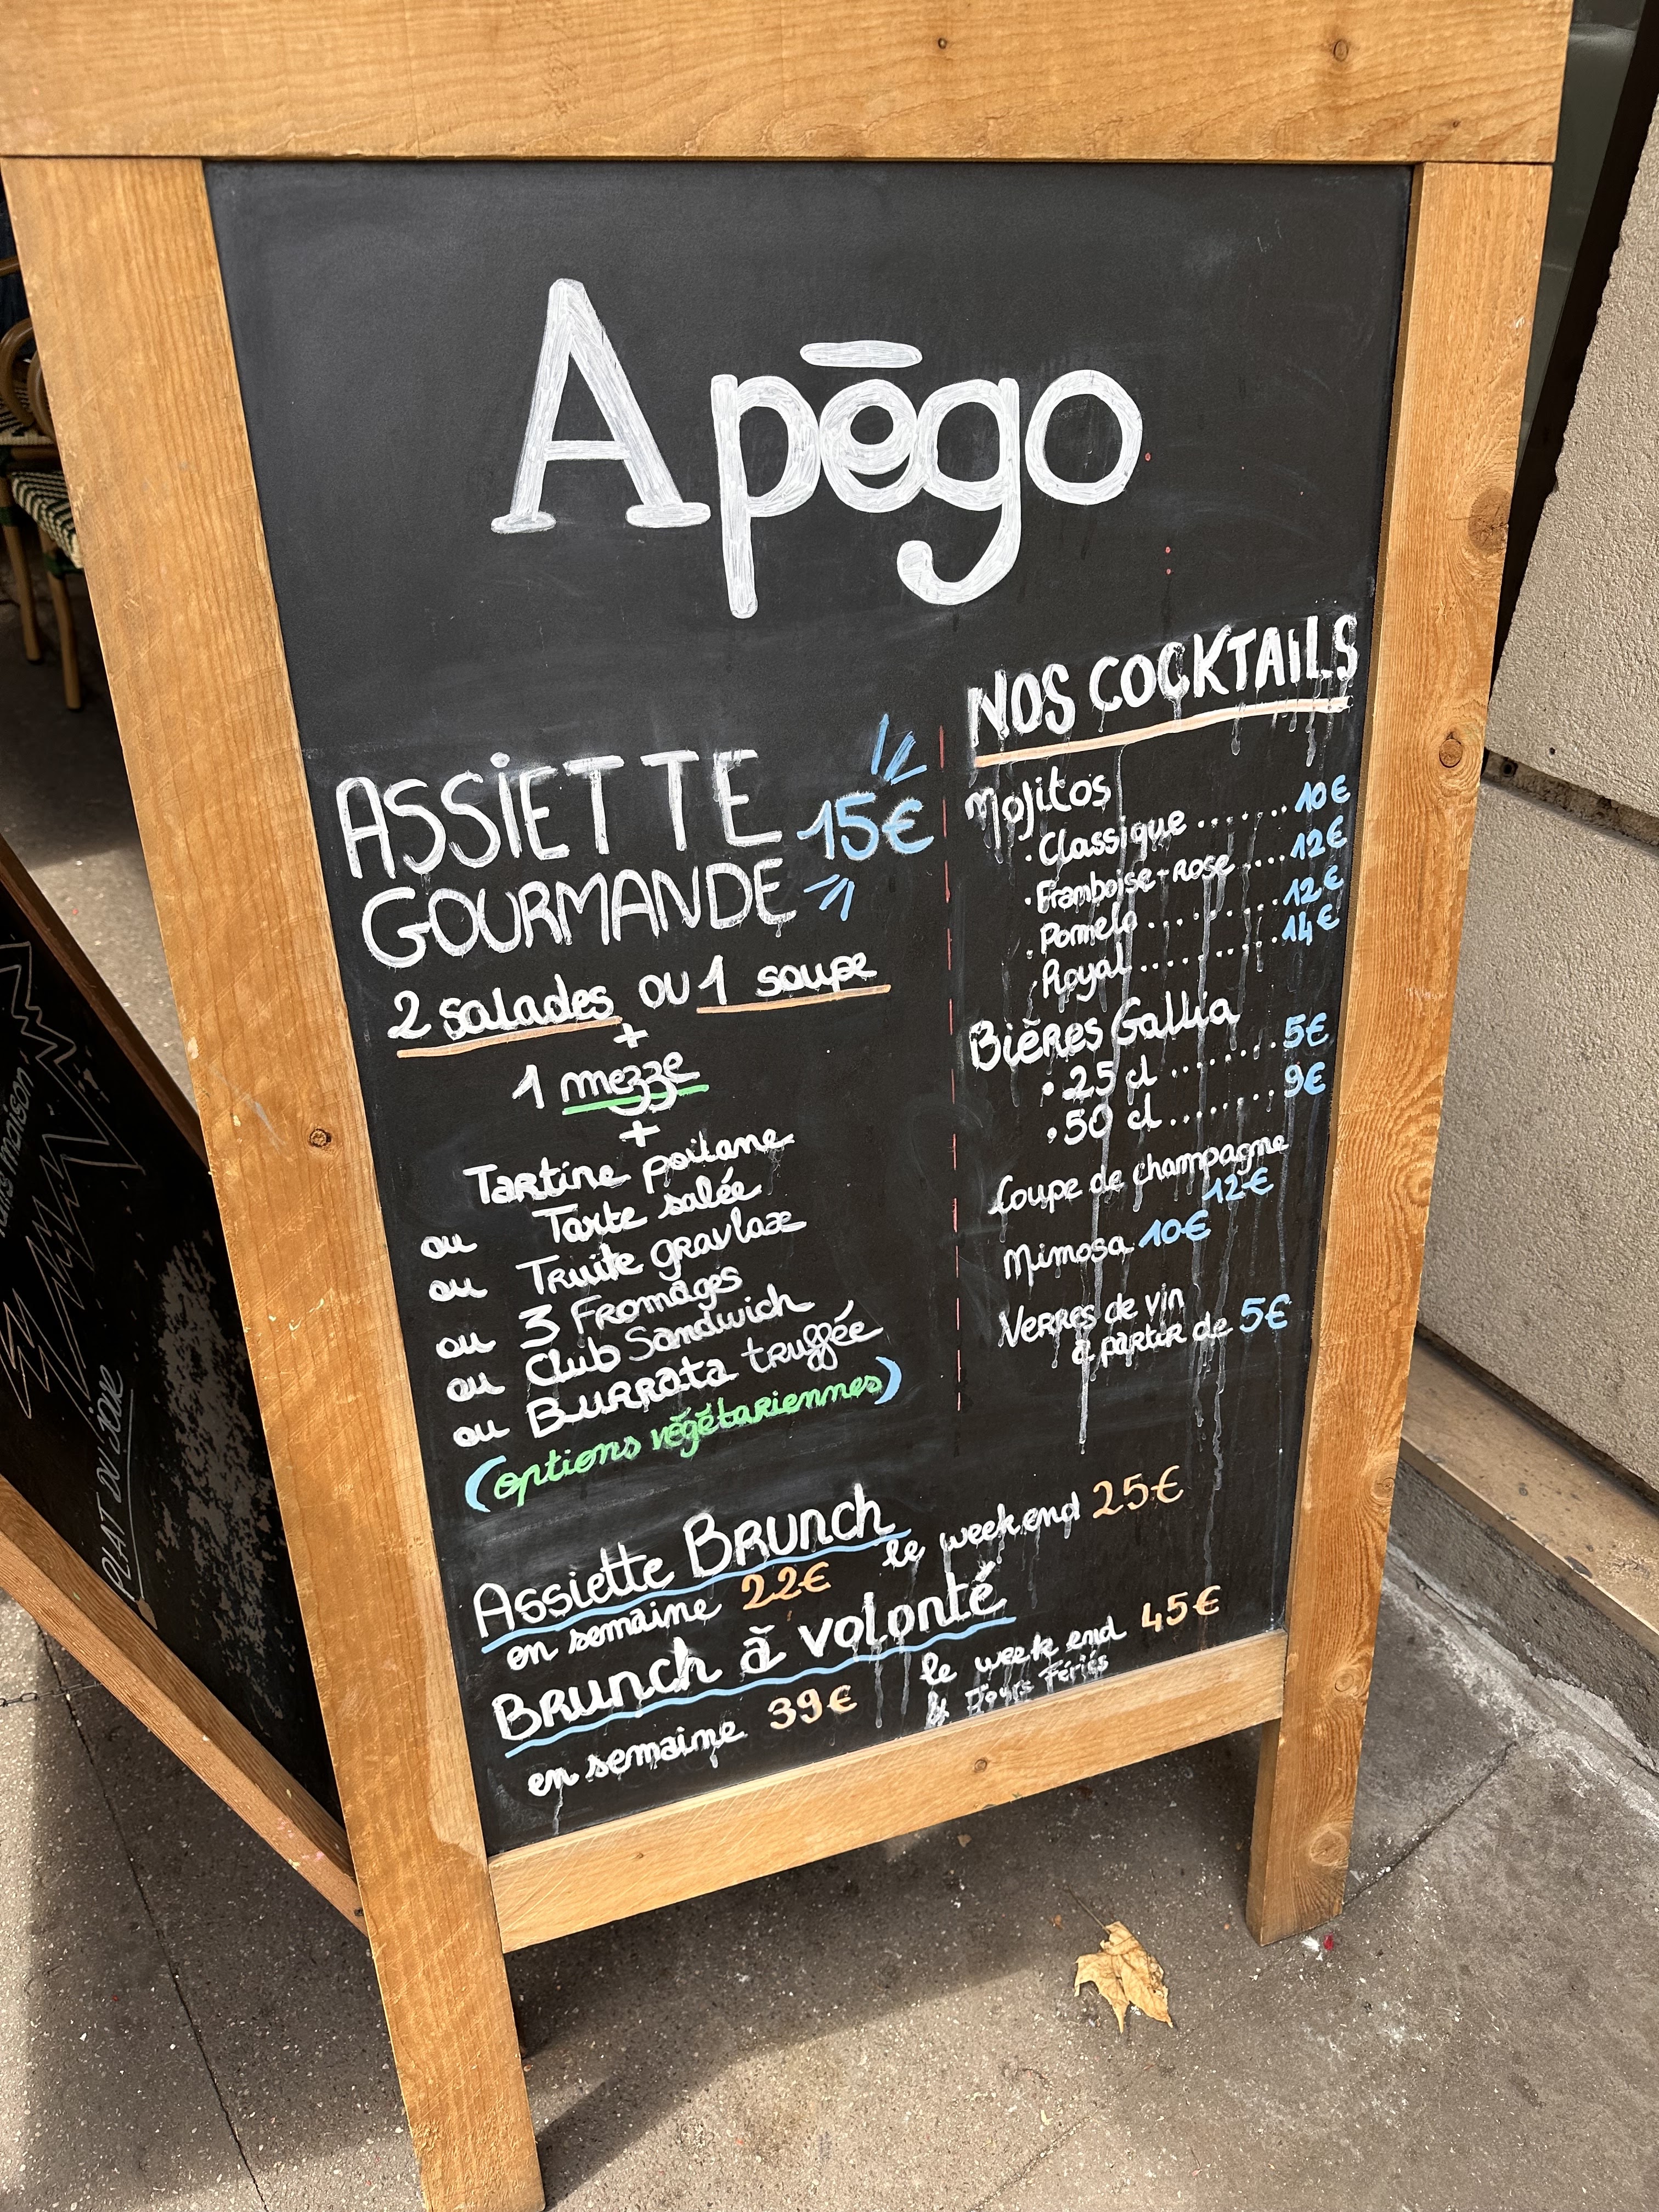 Apēgo
ASSIETTE 15€
GOURMANDE
2 salades ou 1 soupe
+
1 mezze
+
Tartine poilane
ou Tarte salée
ou Truite gravlax
ou 3 Fromages
ou Club Sandwich
ou Burrata truffée
(options végétariennes)
NOS COCKTAILS
Mojitos
· Classique ....... 10€
· Framboise-Rose .... 12€
· Pomelo ......... 12€
· Royal .......... 14€
Bières Gallia
· 25 cl ........ 5€
· 50 cl ........ 9€
Coupe de champagne
12€
Mimosa 10€
Verres de vin
à partir de 5€
Assiette Brunch
en semaine 22€ le week end 25€
Brunch à volonté
en semaine 39€ le week end 45€
& Jours Fériés
maison
PLAT DU JOUR